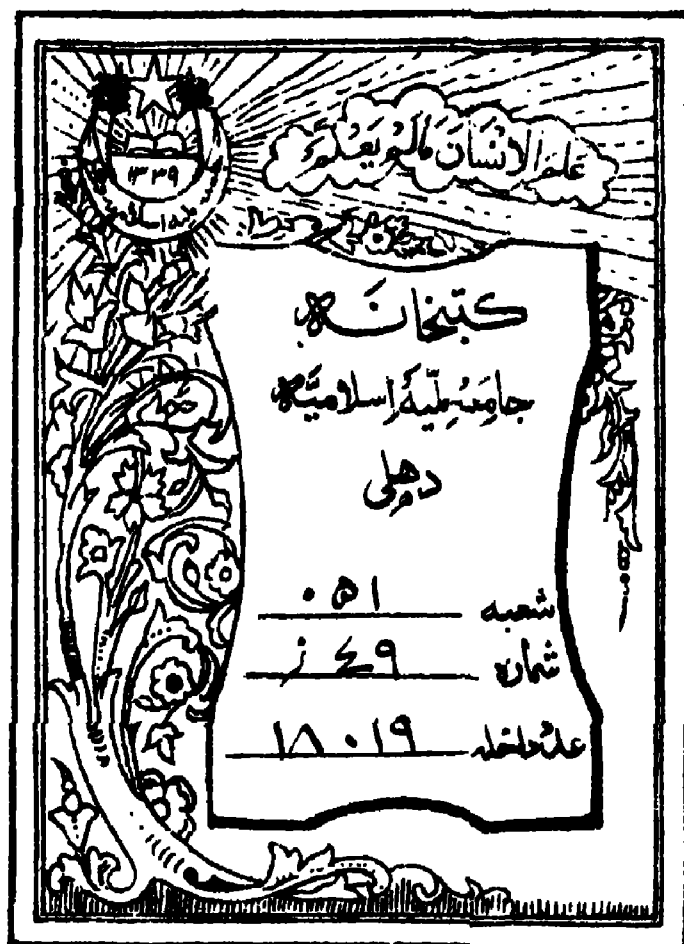 علم الانسان مالم يعلم
۱۳۳۹
کتبخانہ
جامعہ ملیہ اسلامیہ
دہلی
شعبہ ۰۵۱
شمارہ ۴۹ ز
عدد داخلہ ۱۸۰۱۹